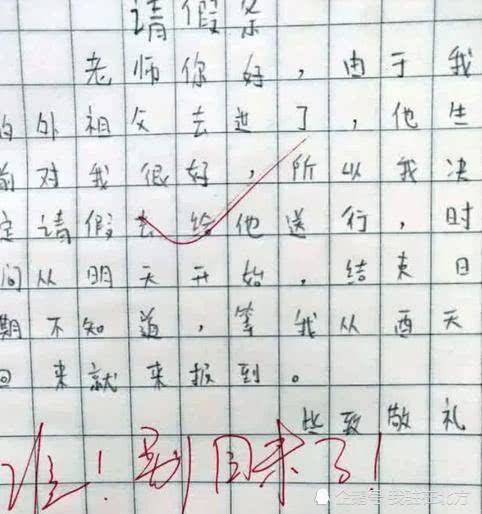 请假条
老师你好，由于我
的外祖父去世了，他生
前对我很好，所以我决
定请假去给他送行，时
间从明天开始，结束日
期不知道，等我从西天
回来就来报到。
些致敬礼
准！别回来了！
企鹅号 我驻在北方